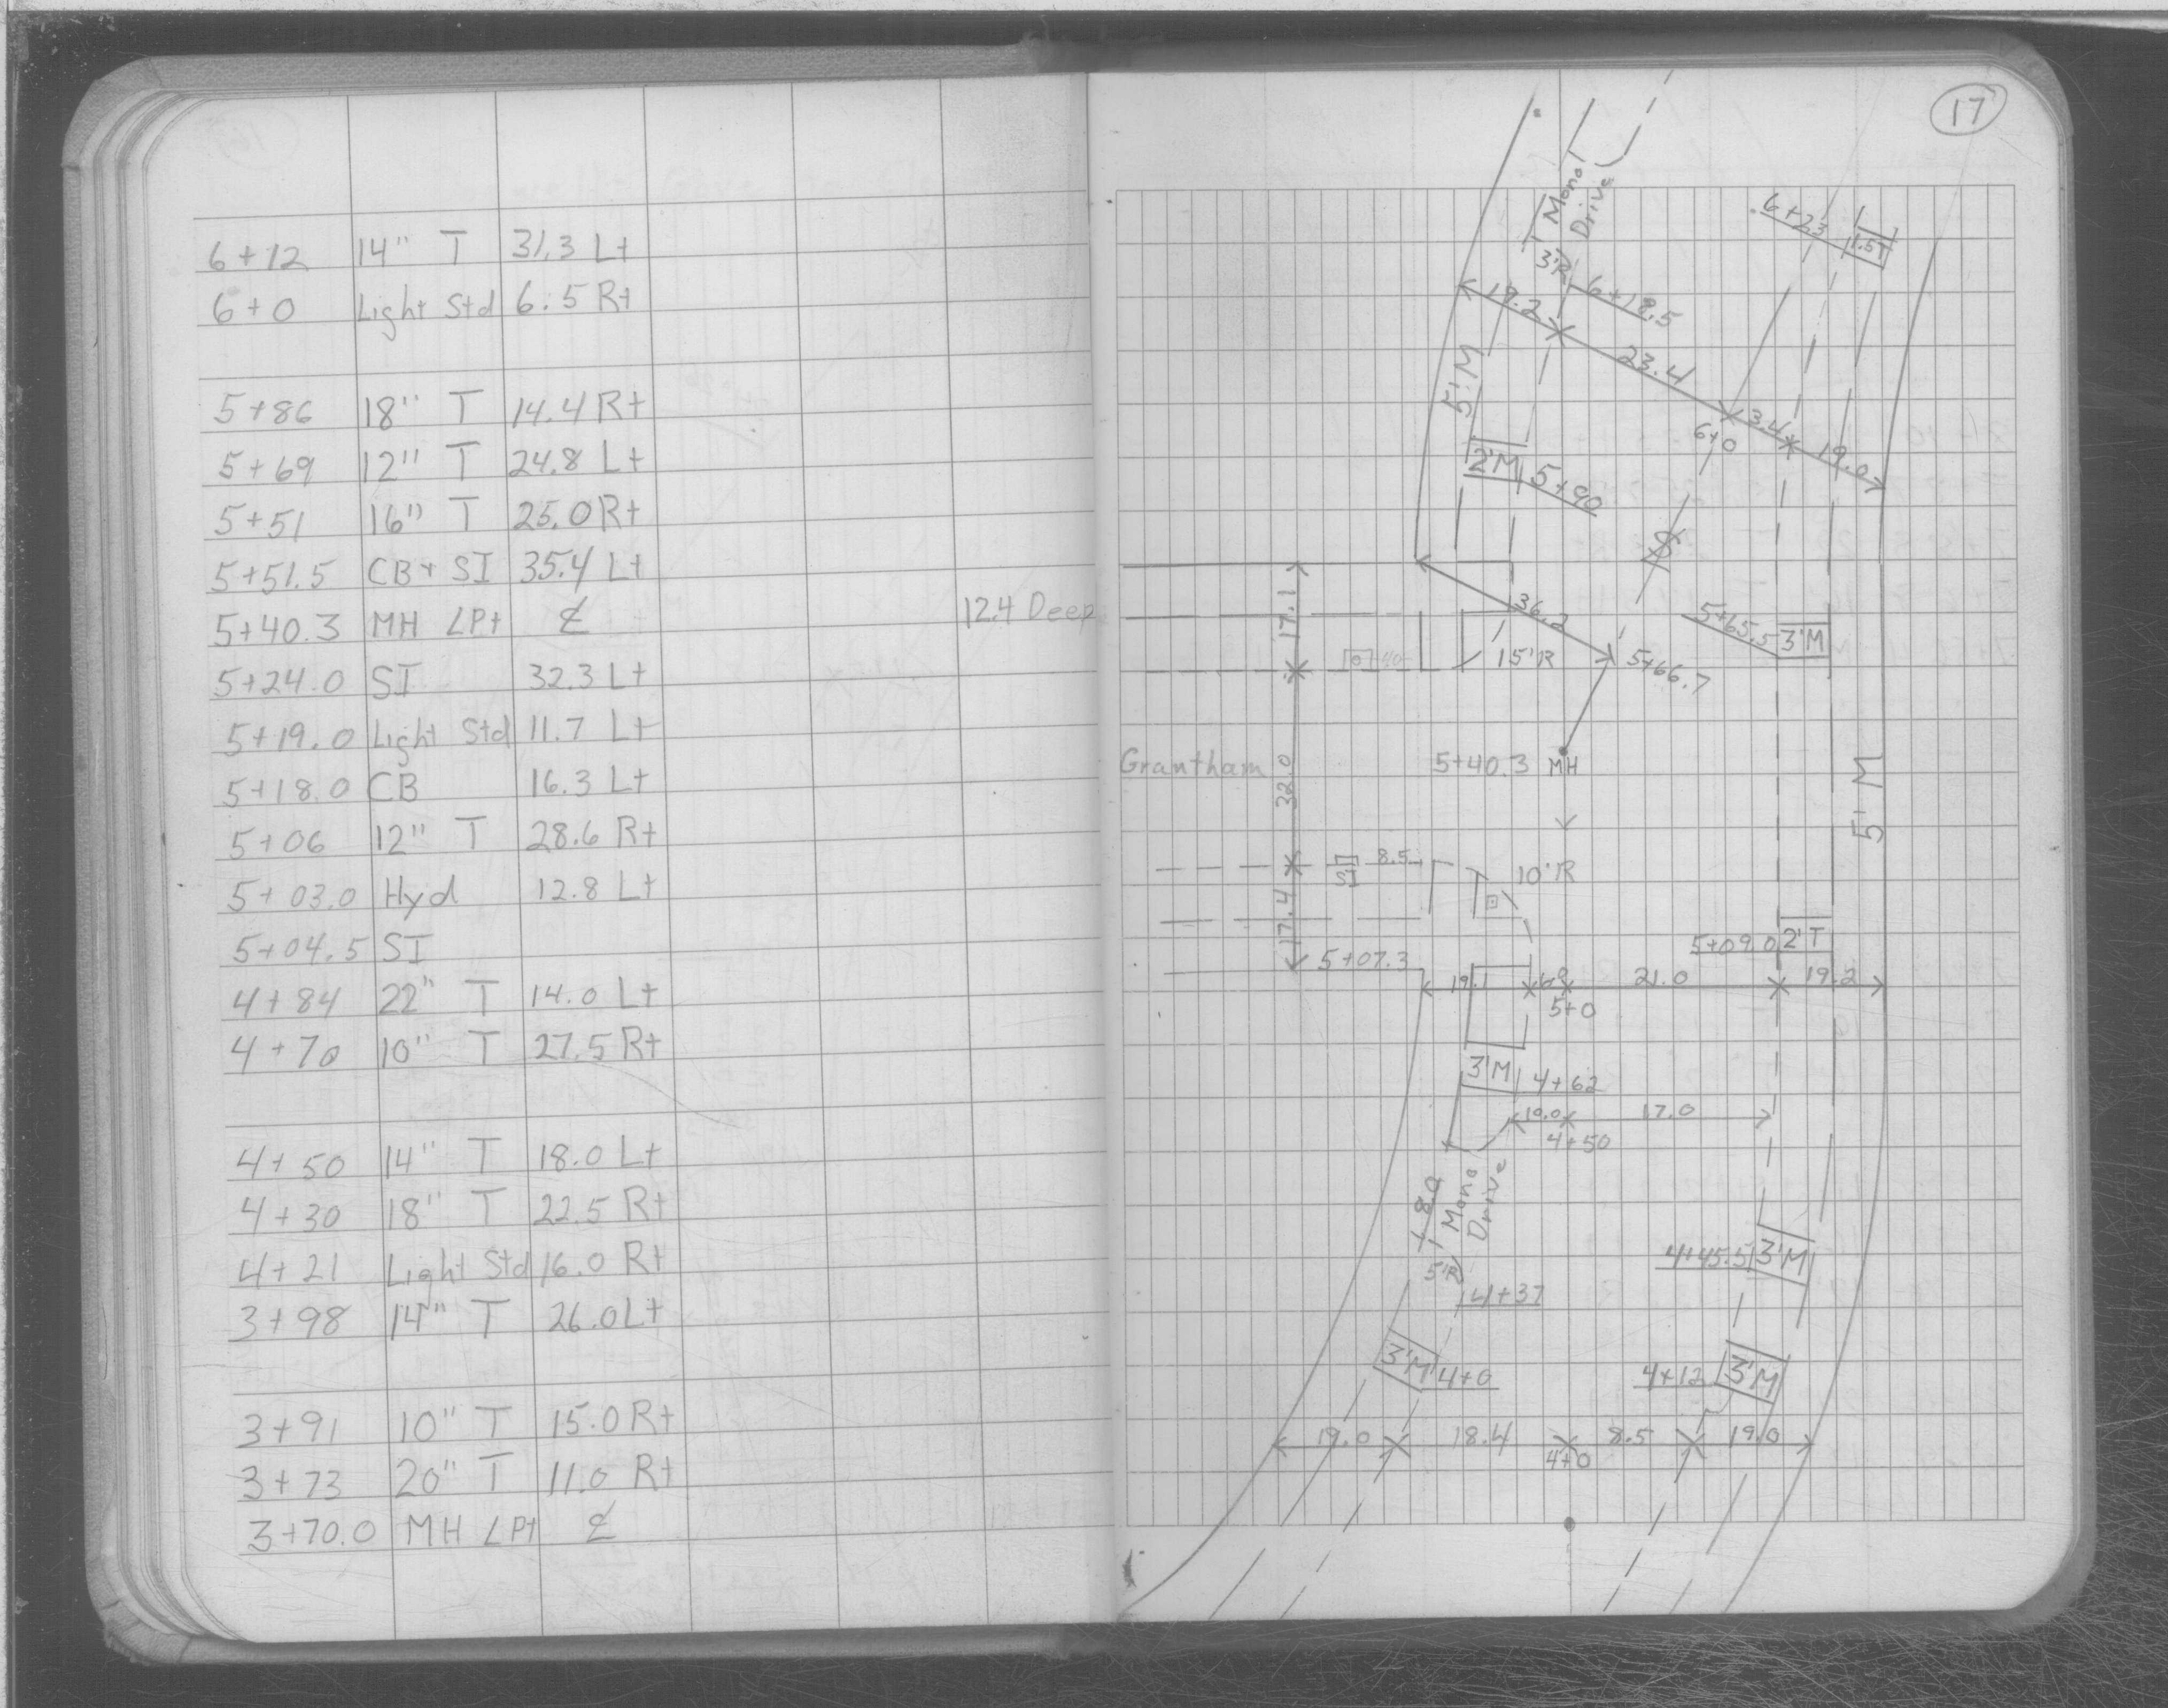 6+12 14" T 31.3 Lt
6+0 Light Std 6.5 Rt
5+86 18" T 14.4 Rt
5+69 12" T 24.8 Lt
5+51 16" T 25.0 Rt
5+51.5 CB+SI 35.4 Lt
5+40.3 MH LPt ℄ 12.4 Deep
5+24.0 SI 32.3 Lt
5+19.0 Light Std 11.7 Lt
5+18.0 CB 16.3 Lt
5+06 12" T 28.6 Rt
5+03.0 Hyd 12.8 Lt
5+04.5 SI
4+84 22" T 14.0 Lt
4+70 10" T 27.5 Rt
4+50 14" T 18.0 Lt
4+30 18" T 22.5 Rt
4+21 Light Std 16.0 Rt
3+98 14" T 26.0 Lt
3+91 10" T 15.0 Rt
3+73 20" T 11.0 Rt
3+70.0 MH LPt ℄
17
Mono
Drive
3'R
6+23
1.5T
6+18.5
19.2
23.4
3.4
19.0
6+0
5'M
2'M
5+90
36.2
17.1
15'R
5+66.7
5+65.5
3'M
Grantham
32.0
5+40.3 MH
5'M
SI
8.5
10'R
17.4
5+07.3
5+09.0
2'T
19.1
21.0
19.2
5+0
3'M
4+62
17.0
4+50
8.0
Mono
Drive
5'R
4+37
4+45.5
3'M
3'M
4+0
4+12
3'M
19.0
18.4
8.5
19.0
4+0